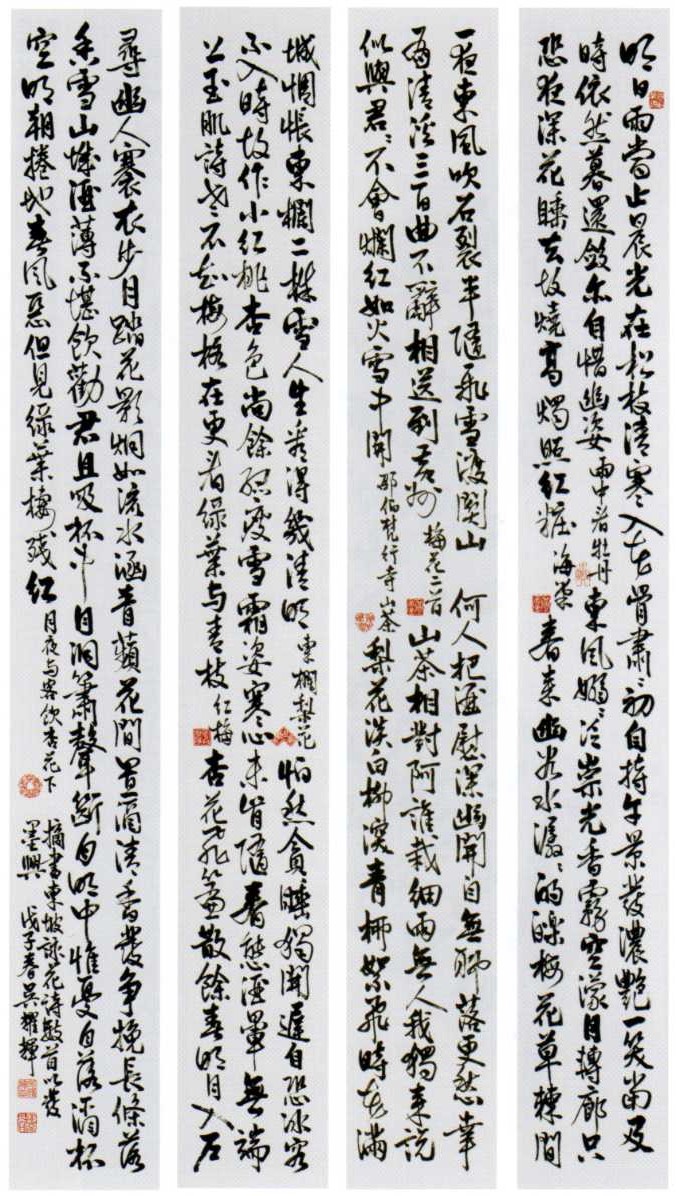 明日雨當止晨光在松枝清寒入花骨肅肅初自持午景發濃艷一笑當及
時依然暮還斂亦自惜幽姿 雨中看牡丹 東風嫋嫋泛崇光香霧空濛月轉廊只
恐夜深花睡去故燒高燭照紅妝 海棠 春來幽谷水潺潺的皪梅花草棘間
一夜東風吹石裂半隨飛雪渡關山 何人把酒慰深幽開自無聊落更愁幸
有清溪三百曲不辭相送到黃州 梅花二首 山茶相對阿誰栽細雨無人我獨來說
似與君君不會爛紅如火雪中開 邵伯梵行寺山茶 梨花淡白柳深青柳絮飛時花滿
城惆悵東欄二株雪人生看得幾清明 東欄梨花 怕愁貪睡獨開遲自恐冰容
不入時故作小紅桃杏色尚餘孤瘦雪霜姿寒心未肯隨春態酒暈無端
上玉肌詩老不知梅格在更看綠葉与青枝 紅梅 杏花飛簾散餘春明月入戶
尋幽人褰衣步月踏花影炯如流水涵青蘋花間置酒清香發爭挽長條落
香雪山城酒薄不堪飲勸君且吸杯中月洞簫聲斷月明中惟憂月落酒杯
空明朝捲地春風惡但見綠葉棲殘紅 月夜与客飲杏花下
摘書東坡詠花詩數首以發
墨興 戊子春吳耀輝